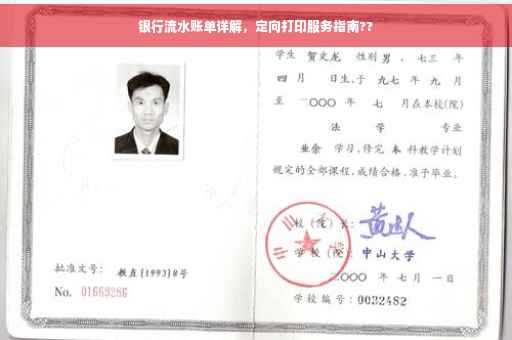 银行流水账单详解，定向打印服务指南??
学生 贺文龙 性别 男，七三 年
四 月 日生，于 九七 年 九 月
至 二〇〇〇 年 七 月在本校(院)
法 学 专业
业余 学习，修完 本 科教学计划
规定的全部课程，成绩合格，准予毕业。
校(院)长：
学 校(院)：中山大学
二〇〇〇 年 七 月 一 日
学校编号：0032482
批准文号： 教直[1993]8号
No. 01669286